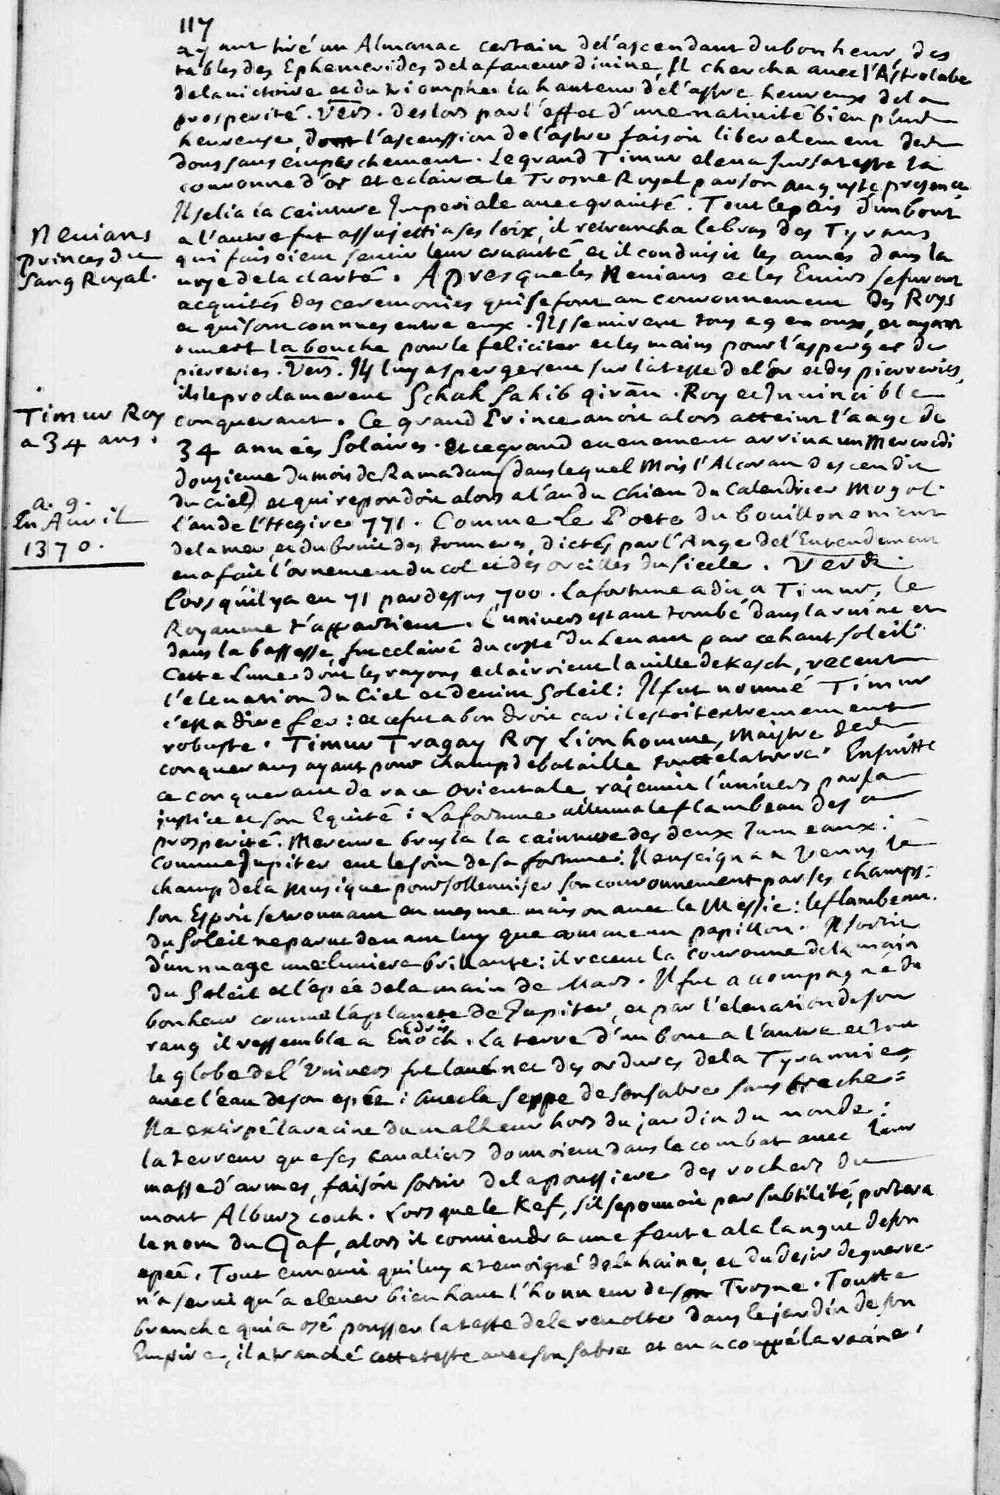 117
ayant tiré un Almanac certain de l'ascendant du bonheur, des
tables des Ephemerides de la faueur diuine, Il chercha auec l'Astrolabe
de la uictoire et du triomphe la hauteur de l'astre heureux de la
prosperité. Vers. des lors par l'effet d'une natiuité bien plus
heureuse, dont l'ascension de l'astre faisoit liberalement des
dons sans empeschement. Le grand Timur eleua sur sa teste la
couronne d'or et eclaira le Trosne Royal par son auguste presence
Il se lia la ceinture Imperiale auec grauité. Tout le païs d'un bout
a l'autre fut assujetti a ses loix, il retrancha le bras des Tyrans
Neuians
princes du
Sang Royal.
qui faisoient sentir leur cruauté, et il conduisit les ames dans la
uoye de la clarté. Apres que les Neuians et les Emirs se furent
acquités des ceremonies qui se font au couronnement des Roys
et qui sont connues entre eux. Ils se mirent tous a genoux, et ayant
ouuert la bouche pour le feliciter et les mains pour l'asperger de
pierreries. Vers. Ils luy aspergerent sur la teste de l'or et des pierreries,
ils le proclamerent Schah Sahib qirān. Roy et Inuincible
Timur Roy
a 34 ans.
conquerant. Ce grand Prince auoit alors atteint l'aage de
34 années Solaires. et ce grand euenement arriua un Mercredi
douzieme du mois de Ramadan (dans lequel Mois l'Alcoran descendit
du Ciel) et qui repondoit alors a l'an du Chien du Calendrier Mogol.
a. 9.
En Auril
1370.
l'an de l'Hegire 771. Comme le Poete du bouillonement
de la mer, et du bruit des tonneres, dictés par l'Ange de l'Entendement
en a fait l'ornement du col et des oreilles du siecle. Vers
Lors qu'il y a eu 71 par dessus 700. La fortune a dit a Timur, le
Royaume t'appartient. L'uniuers estant tombé dans la ruine et
dans la bassesse, fut eclairé du costé du Leuant par ce haut soleil
Cette Lune dont les rayons eclairoient la uille de Kesch, receut
l'eleuation du Ciel et deuint Soleil: Il fut nommé Timur
c'est a dire fer: et ce fut a bon droit car il estoit extremement
robuste. Timur Tragay Roy Lion homme, Maistre des
conquerans ayant pour champ de bataille toute la terre. Ensuitte
ce conquerant de race orientale rajeunit l'uniuers par sa
justice et son Equité: La fortune alluma le flambeau de sa
prosperité. Mercure brusla la ceinture des deux Jumeaux:
Comme Jupiter eut le soin de sa fortune: Il enseigna a Venus le
champ de la Musique pour sollemniser son couronnement par ses champs:
son Esprit se trouuant en mesme maison auec le Messie: le flambeau
du Soleil ne parut deuant luy que comme un papillon. Il sortit
d'un nuage une lumiere brillante: il receut la couronne de la main
du Soleil et l'épée de la main de Mars. Il fut accompagné du
bonheur comme la planete de Jupiter, et par l'eleuation de son
rang il ressemble a Enoch. La terre d'un bout a l'autre et tout
Edris
le globe de l'Uniuers fut laué net des ordures de la Tyrannie
auec l'eau de son epée: auec la seppe de son sabre sans breche
Il a extirpé la racine du malheur hors du jardin du monde:
la terreur que ses caualiers donnoient dans le combat auec leur
masse d'armes, faisoit sortir de la poussiere des rochers du
mont Alburz couh. Lors que le Kef, s'il se pouuoit par subtilité, portera
le nom du Qaf, alors il conuiendra une fente a la langue de son
epeé. Tout ennemi qui luy a temoigné de la haine, et du desir de guerre
n'a serui qu'a eleuer bien haut l'honneur de son Trosne. Toutte
branche qui a osé pousser la teste de la reuolte dans le jardin de son
Empire, il a tranché cette teste auec son sabre et en a couppé la racine.